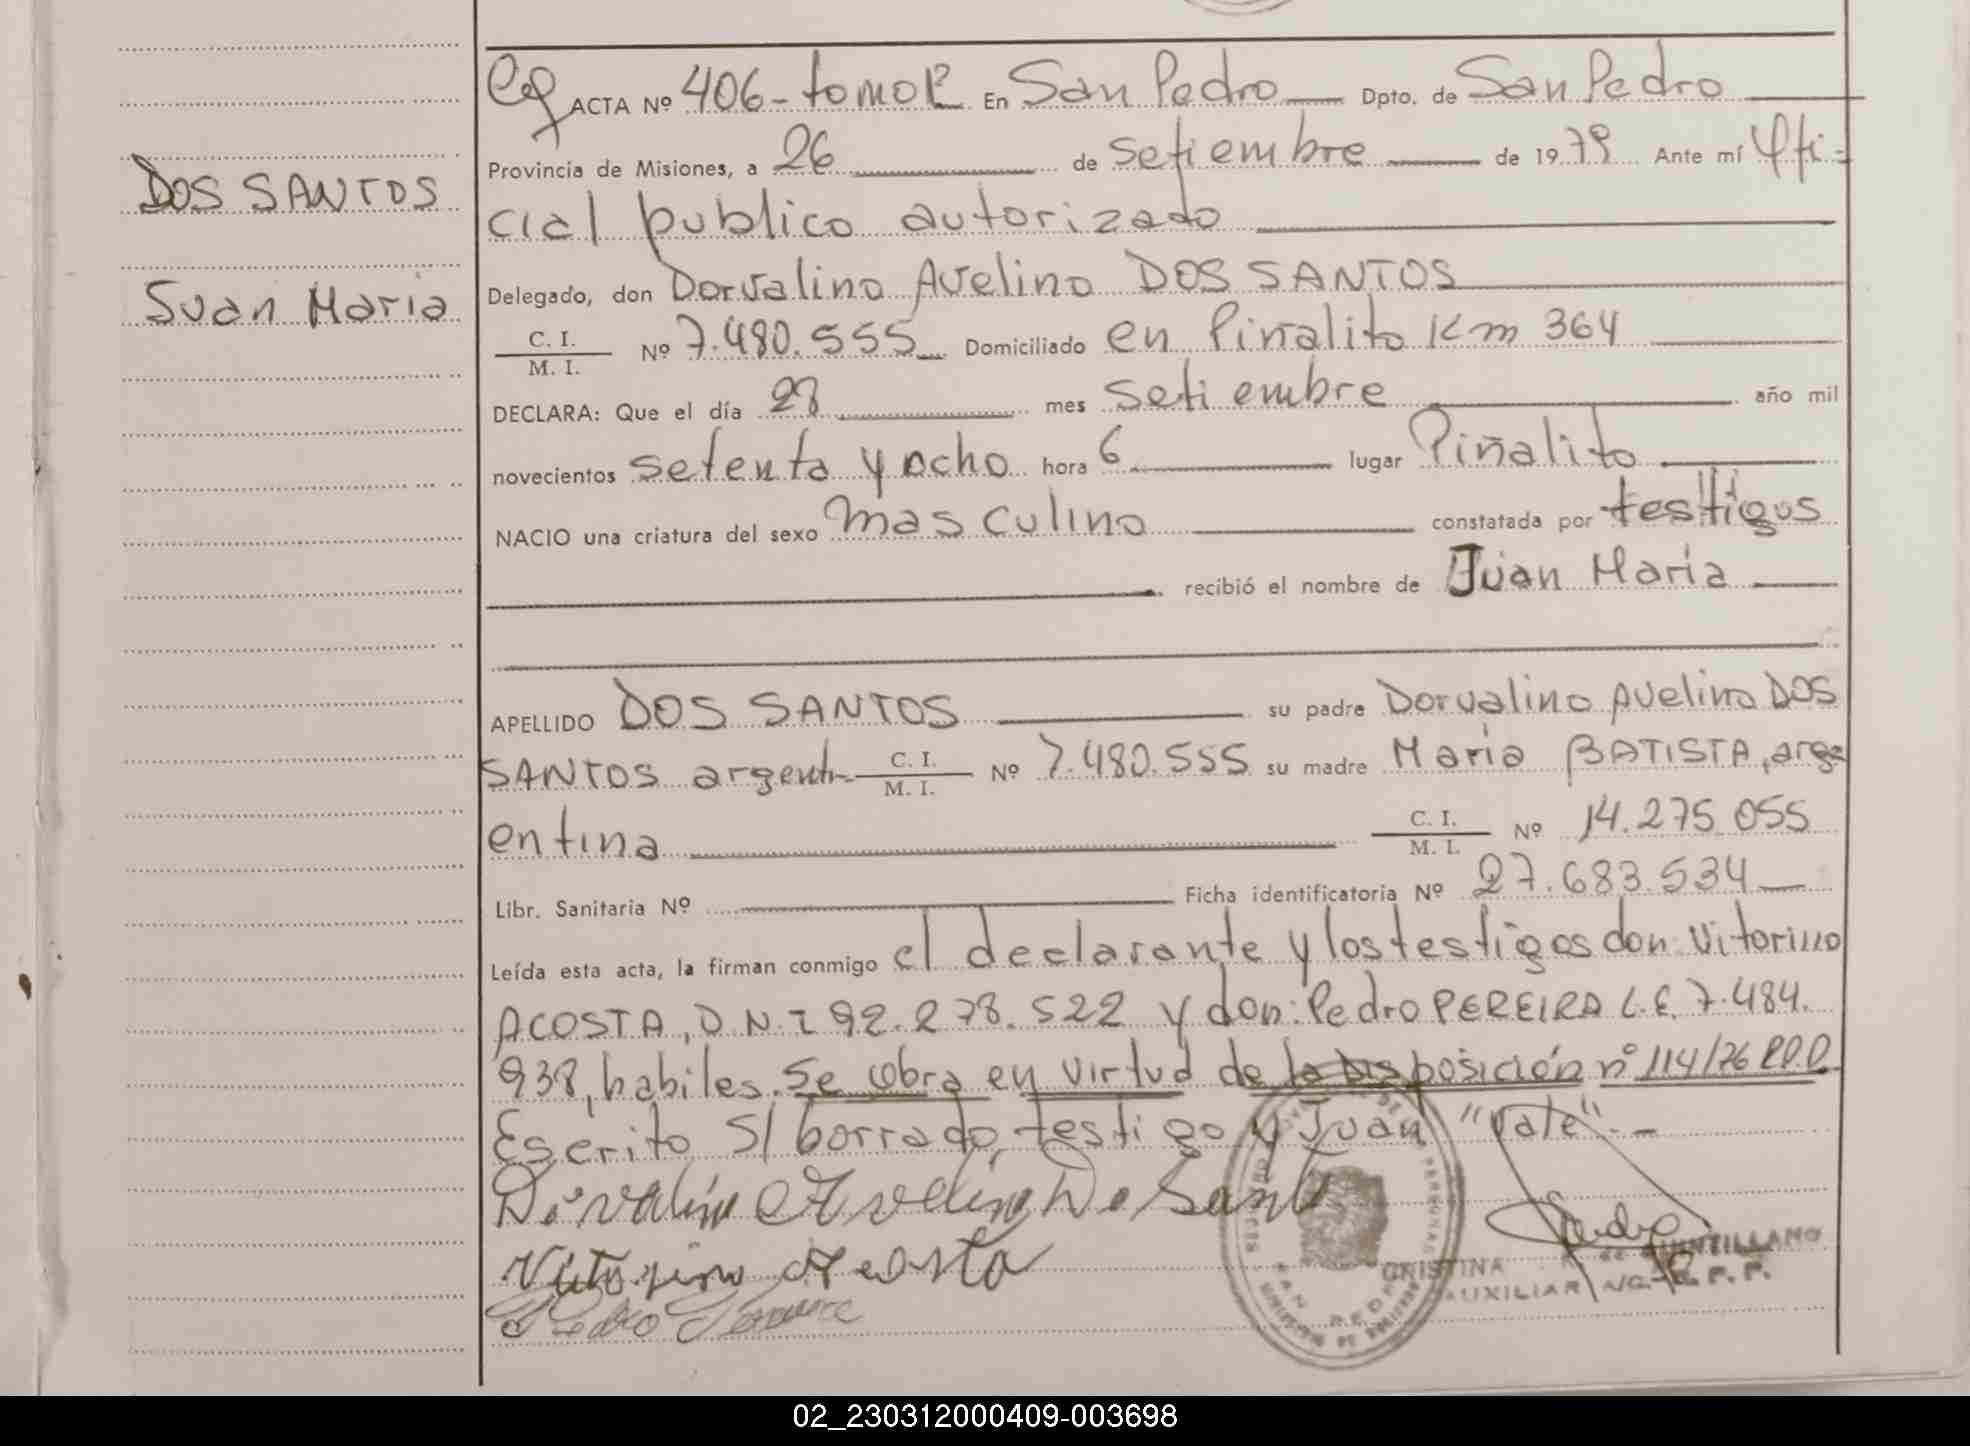 DOS SANTOS
Juan Maria
ACTA Nº 406-tomo 1º En San Pedro Dpto. de San Pedro
Provincia de Misiones, a 26 de setiembre de 1979 Ante mí Ofi=
cial publico autorizado
Delegado, don Dorvalino Avelino DOS SANTOS
C. I.
M. I. Nº 7.480.555 Domiciliado en Piñalito Km 364
DECLARA: Que el día 28 mes setiembre año mil
novecientos setenta y ocho hora 6 lugar Piñalito
NACIO una criatura del sexo masculino constatada por testigos
recibió el nombre de Juan Maria
APELLIDO DOS SANTOS su padre Dorvalino Avelino DOS
SANTOS argentin C. I. M. I. Nº 7.480.555 su madre Maria BATISTA, arg
entina C. I. M. I. Nº 14.275.055
Libr. Sanitaria Nº Ficha identificatoria Nº 27.683.534
Leída esta acta, la firman conmigo el declarante y los testigos don: Vitorino
ACOSTA, D.N.I 92.278.522 y don: Pedro PEREIRA L.E. 7.484.
938, habiles. Se obra en virtud de la Disposición nº 114/76 R.D.D
Escrito S/ borrado, testigo y Juan "Vale".-
Vitorino Acosta
Pedro
CRISTINA DE QUINTILLANO
AUXILIAR A/C. R. P. P.
SAN PEDRO
02_230312000409-003698